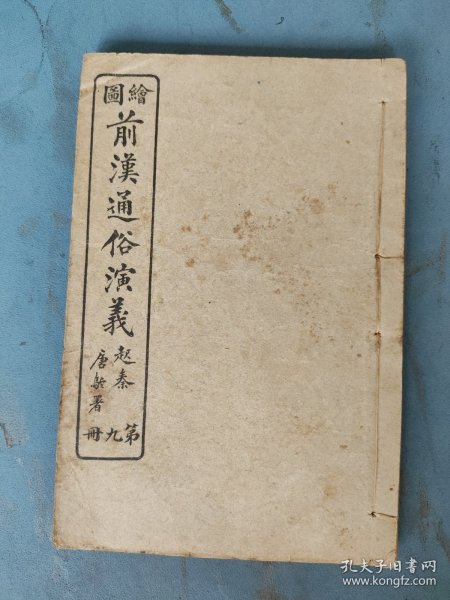 繪圖
前漢通俗演義
起秦
唐駝署
第九冊
孔夫子旧书网
www.kongfz.com